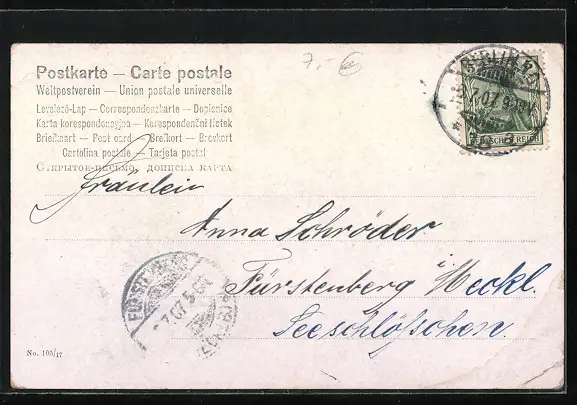 7,- €
Postkarte — Carte postale
Weltpostverein — Union postale universelle
Levelező-Lap — Correspondenzkarte — Dopisnice
Karta korespondencyjna — Korespondenční lístek
Briefkaart — Post card — Brefkort — Brevkort
Cartolina postale — Tarjeta postal
Открытое письмо, дописна карта
DEUTSCHES REICH
Fräulein
Anna Schröder
Fürstenberg i/Meckl.
Seeschlößchen.
No. 105/17